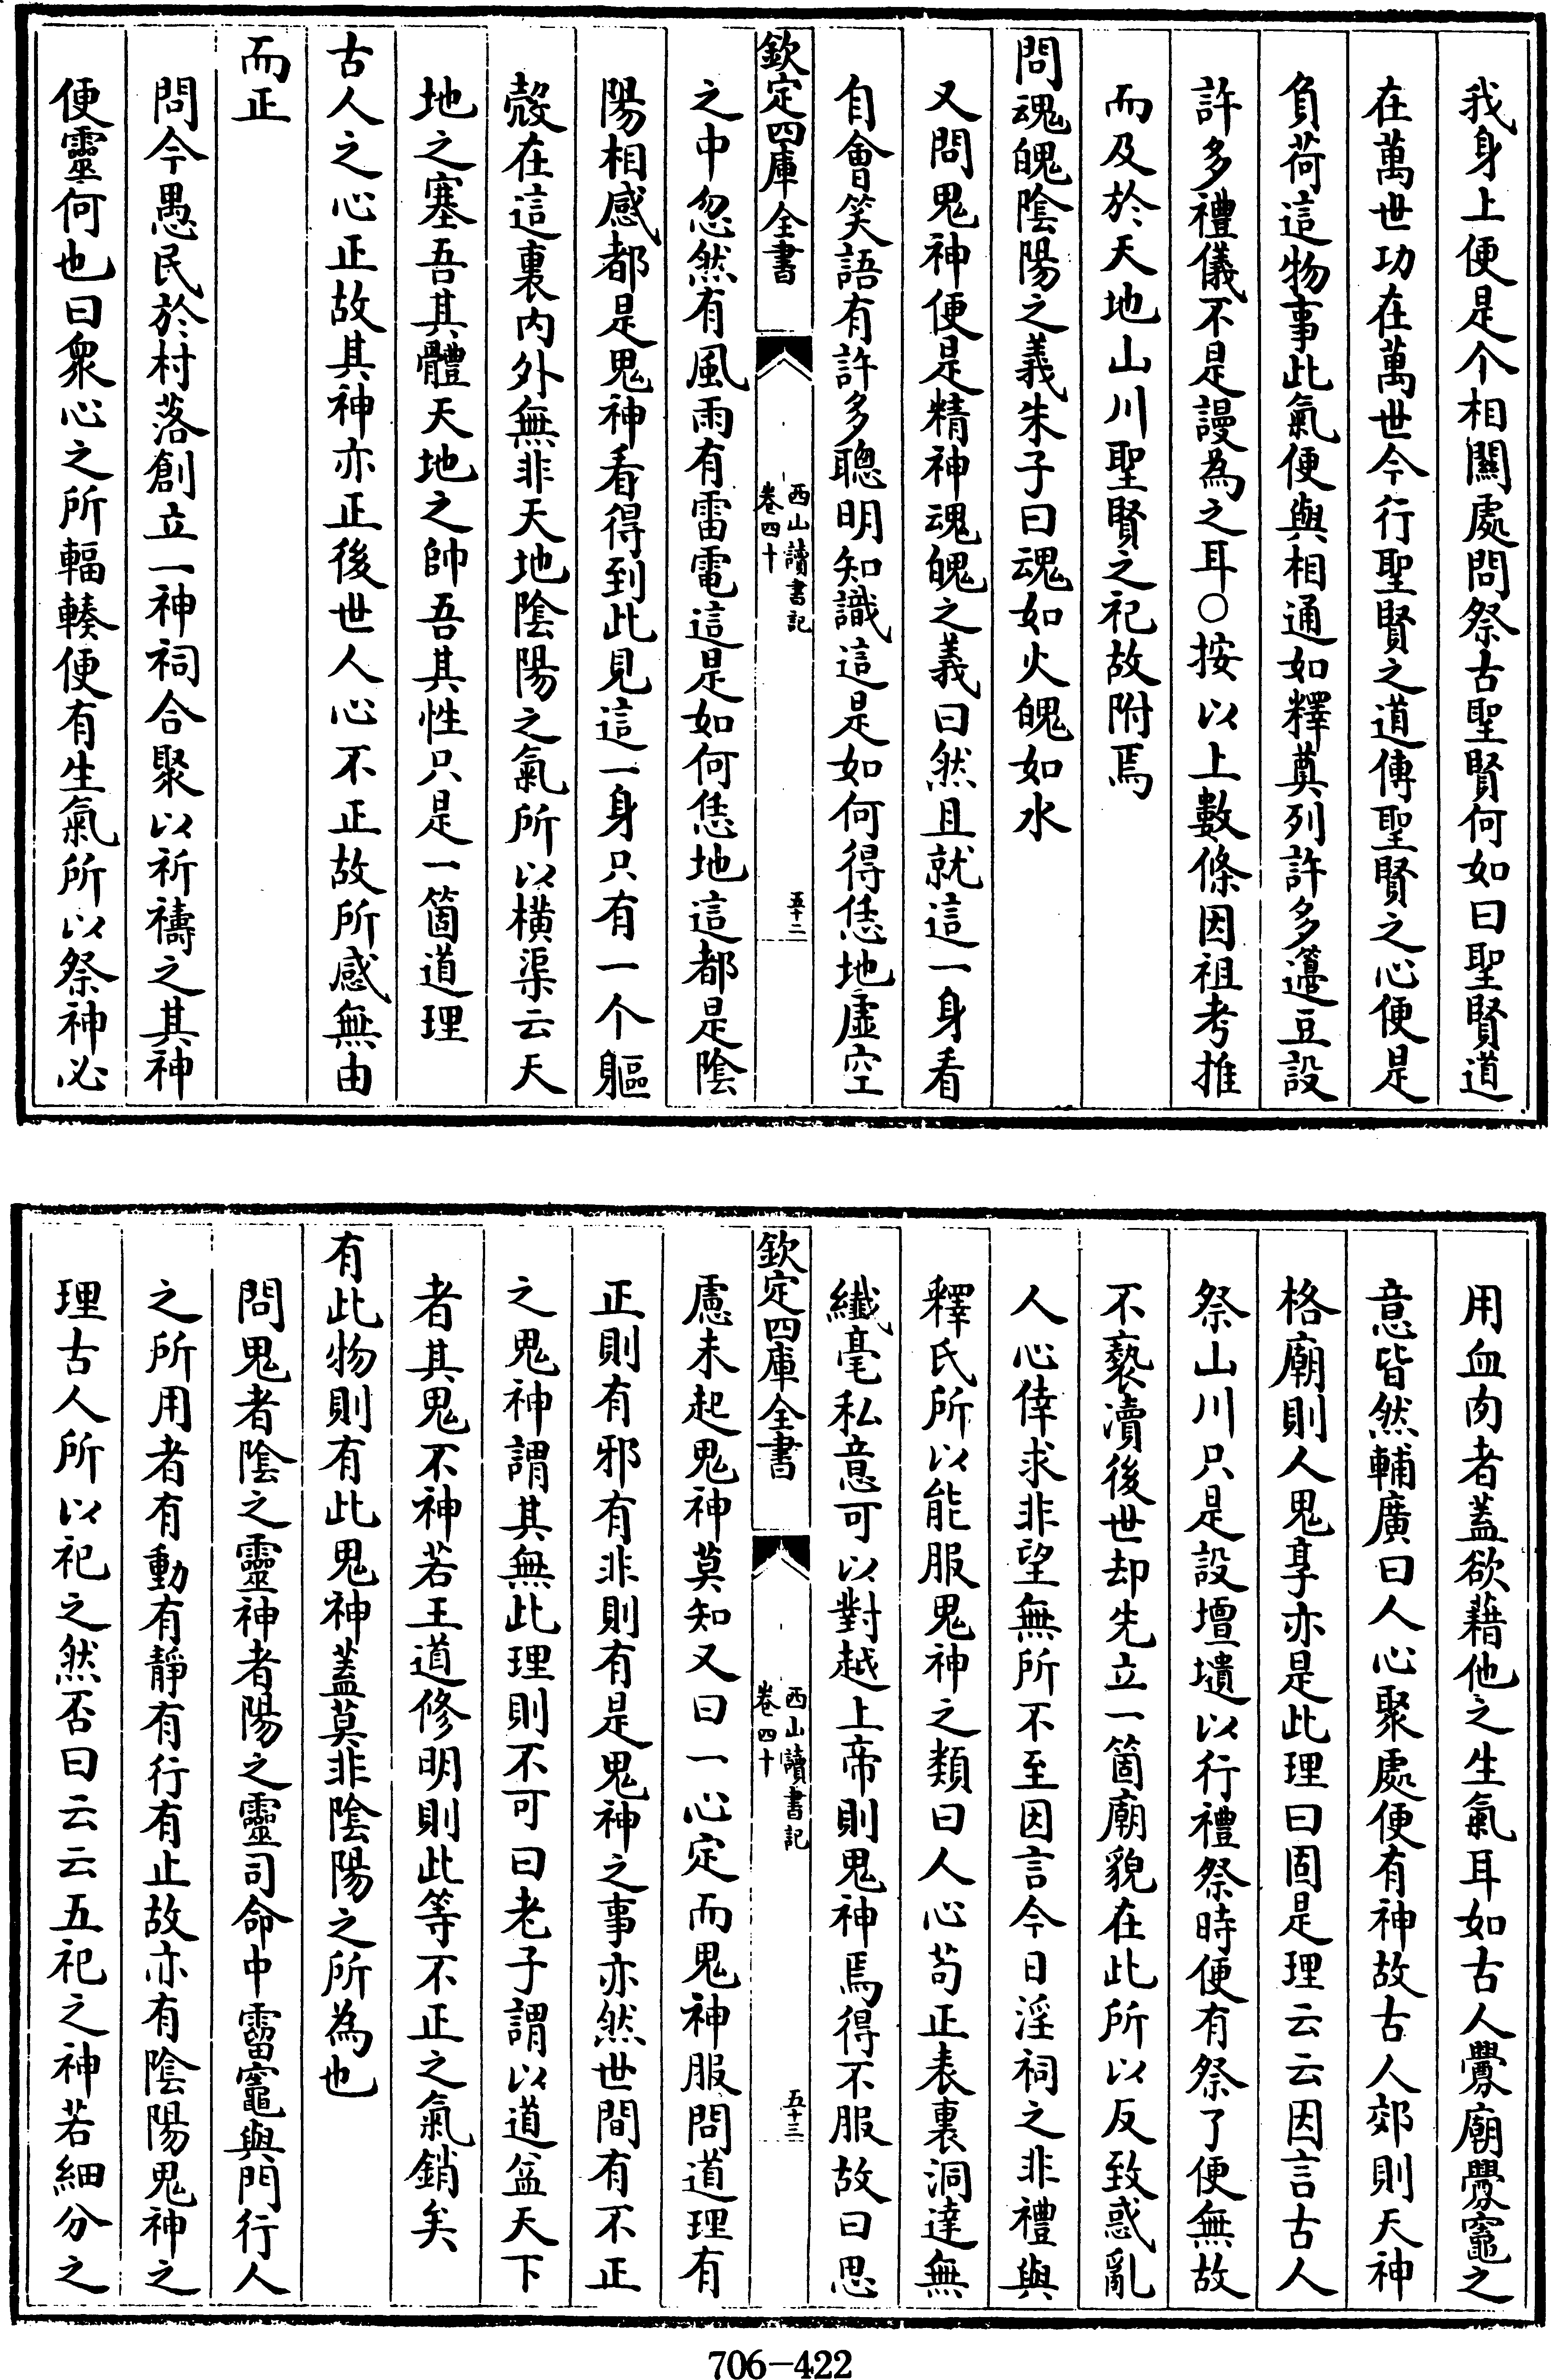 我身上便是个相關處問祭古聖賢何如曰聖賢道
在萬世功在萬世今行聖賢之道傳聖賢之心便是
負荷這物事此氣便與相通如釋奠列許多籩豆設
許多禮儀不是謾為之耳○按以上數條因祖考推
而及於天地山川聖賢之祀故附焉
問魂魄陰陽之義朱子曰魂如火魄如水
又問鬼神便是精神魂魄之義曰然且就這一身看
自會笑語有許多聰明知識這是如何得恁地虛空
欽定四庫全書
西山讀書記
卷四十
五十二
之中忽然有風雨有雷電這是如何恁地這都是陰
陽相感都是鬼神看得到此見這一身只有一个軀
殼在這裏内外無非天地陰陽之氣所以横渠云天
地之塞吾其體天地之帥吾其性只是一箇道理
古人之心正故其神亦正後世人心不正故所感無由
而正
問今愚民於村落創立一神祠合聚以祈禱之其神
便靈何也曰衆心之所輻輳便有生氣所以祭神必
用血肉者蓋欲藉他之生氣耳如古人釁廟釁竈之
意皆然輔廣曰人心聚處便有神故古人郊則天神
格廟則人鬼享亦是此理曰固是理云云因言古人
祭山川只是設壇壝以行禮祭時便有祭了便無故
不褻瀆後世却先立一箇廟貌在此所以反致惑亂
人心倖求非望無所不至因言今日淫祠之非禮與
釋氏所以能服鬼神之類曰人心苟正表裏洞達無
纖毫私意可以對越上帝則鬼神焉得不服故曰思
欽定四庫全書
西山讀書記
卷四十
五十三
慮未起鬼神莫知又曰一心定而鬼神服問道理有
正則有邪有非則有是鬼神之事亦然世間有不正
之鬼神謂其無此理則不可曰老子謂以道蒞天下
者其鬼不神若王道修明則此等不正之氣銷矣
有此物則有此鬼神蓋莫非陰陽之所為也
問鬼者陰之靈神者陽之靈司命中霤竈與門行人
之所用者有動有靜有行有止故亦有陰陽鬼神之
理古人所以祀之然否曰云云五祀之神若細分之
706-422